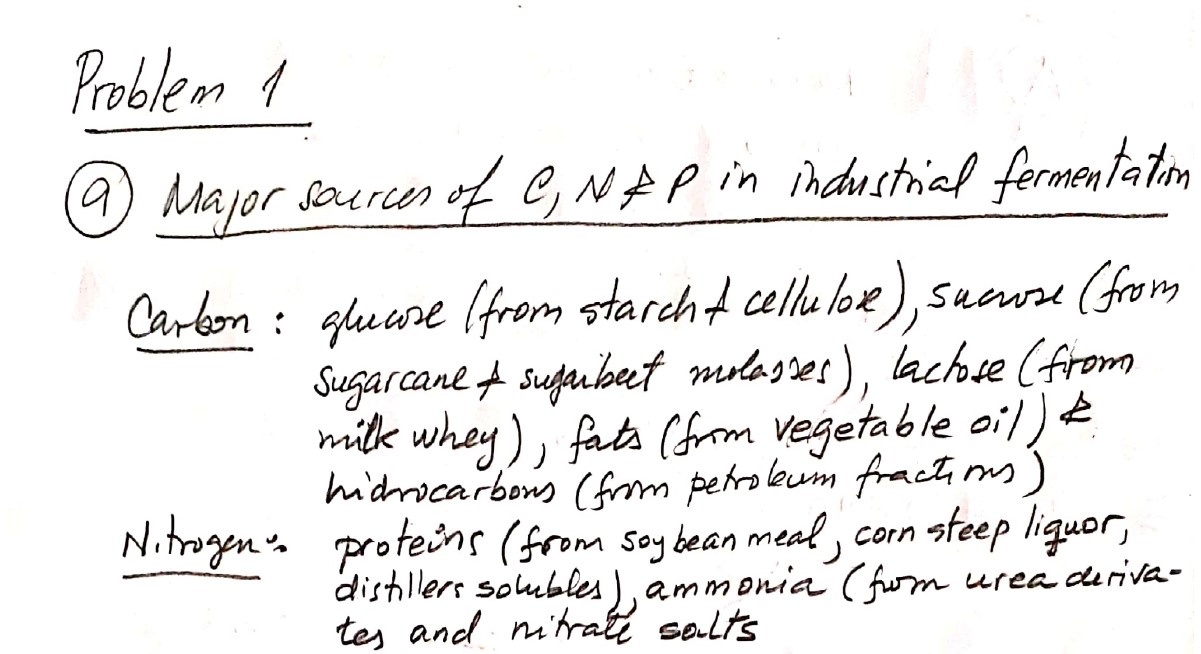 Problem 1
(a) Major sources of C, N & P in industrial fermentation
Carbon : glucose (from starch & cellulose), sucrose (from
sugarcane & sugarbeet molasses), lactose (from
milk whey), fats (from vegetable oil) &
hidrocarbons (from petroleum fractions)
Nitrogen : proteins (from soybean meal, corn steep liquor,
distillers solubles), ammonia (from urea deriva-
tes and nitrate salts